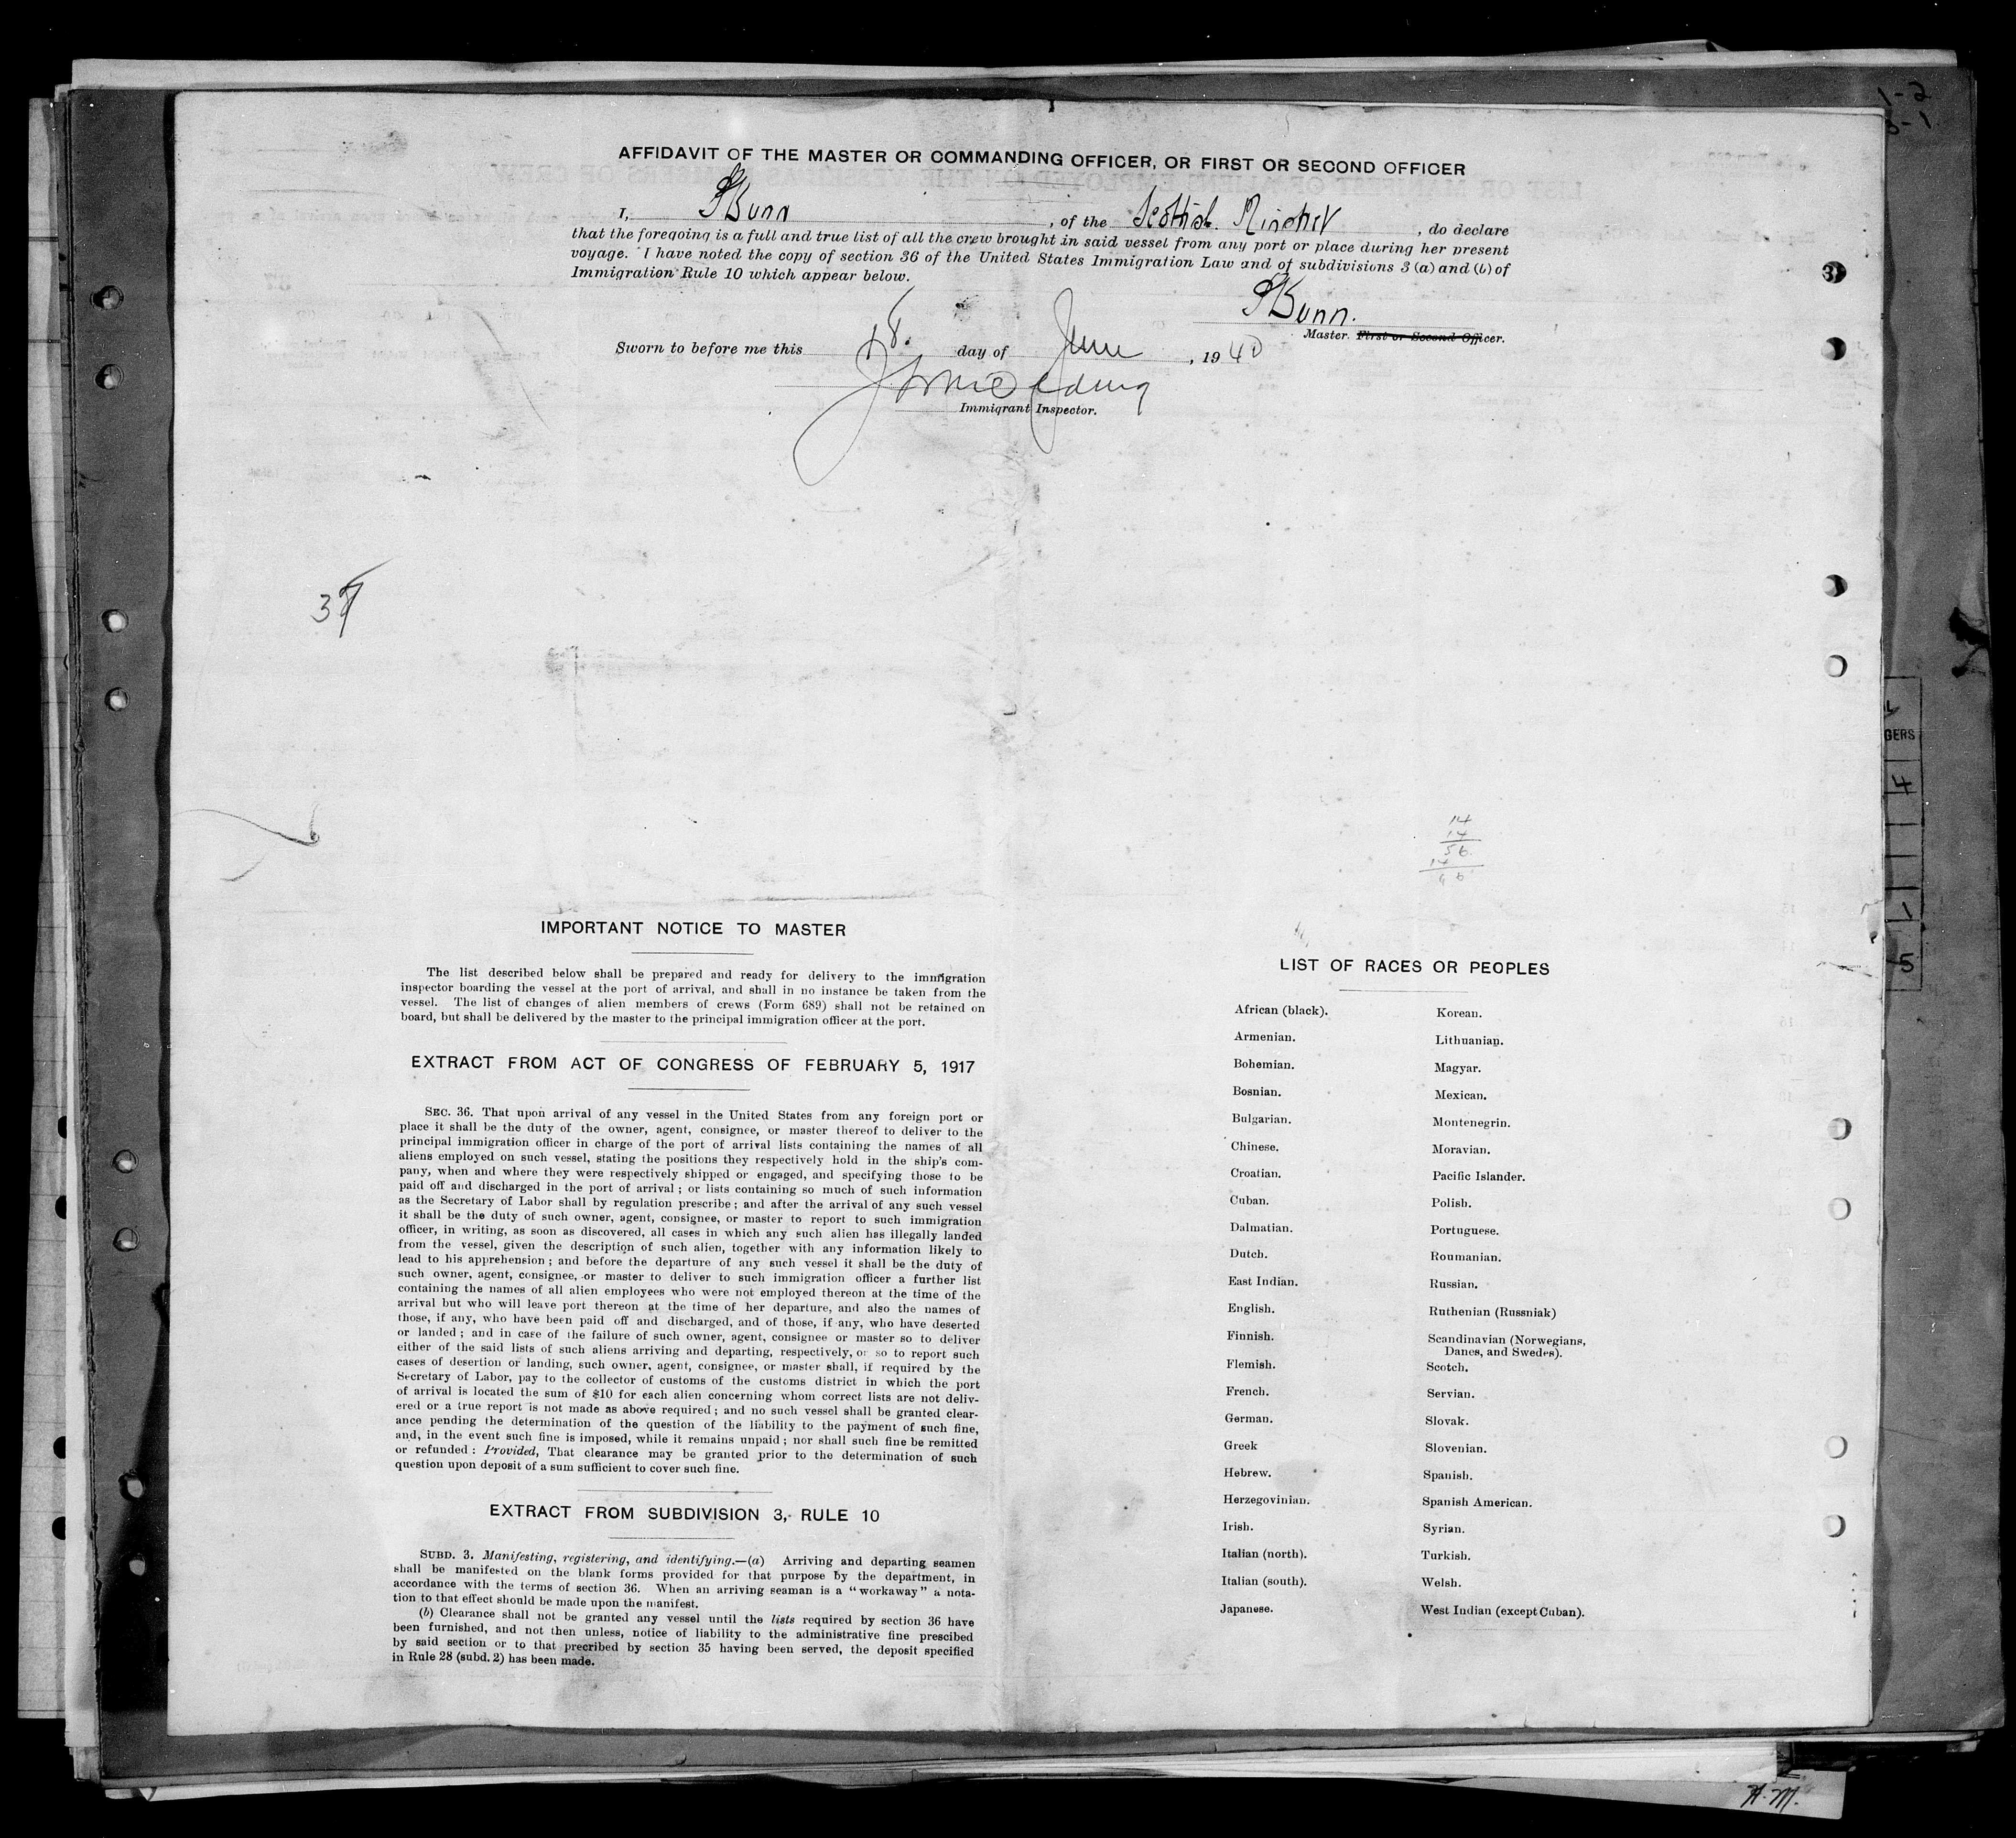 1-2
3-1
AFFIDAVIT OF THE MASTER OR COMMANDING OFFICER, OR FIRST OR SECOND OFFICER
I, SBunn, of the Scottish, do declare
that the foregoing is a full and true list of all the crew brought in said vessel from any port or place during her present
voyage. I have noted the copy of section 36 of the United States Immigration Law and of subdivisions 3 (a) and (b) of
Immigration Rule 10 which appear below.
SBunn.
Master First or Second Officer.
Sworn to before me this 18. day of June, 1940
Immigrant Inspector.
3
GERS
4
1
5
14
14
56
14
IMPORTANT NOTICE TO MASTER
The list described below shall be prepared and ready for delivery to the immigration
inspector boarding the vessel at the port of arrival, and shall in no instance be taken from the
vessel. The list of changes of alien members of crews (Form 689) shall not be retained on
board, but shall be delivered by the master to the principal immigration officer at the port.
EXTRACT FROM ACT OF CONGRESS OF FEBRUARY 5, 1917
SEC. 36. That upon arrival of any vessel in the United States from any foreign port or
place it shall be the duty of the owner, agent, consignee, or master thereof to deliver to the
principal immigration officer in charge of the port of arrival lists containing the names of all
aliens employed on such vessel, stating the positions they respectively hold in the ship's com-
pany, when and where they were respectively shipped or engaged, and specifying those to be
paid off and discharged in the port of arrival; or lists containing so much of such information
as the Secretary of Labor shall by regulation prescribe; and after the arrival of any such vessel
it shall be the duty of such owner, agent, consignee, or master to report to such immigration
officer, in writing, as soon as discovered, all cases in which any such alien has illegally landed
from the vessel, given the description of such alien, together with any information likely to
lead to his apprehension; and before the departure of any such vessel it shall be the duty of
such owner, agent, consignee, or master to deliver to such immigration officer a further list
containing the names of all alien employees who were not employed thereon at the time of the
arrival but who will leave port thereon at the time of her departure, and also the names of
those, if any, who have been paid off and discharged, and of those, if any, who have deserted
or landed; and in case of the failure of such owner, agent, consignee or master so to deliver
either of the said lists of such aliens arriving and departing, respectively, or so to report such
cases of desertion or landing, such owner, agent, consignee, or master shall, if required by the
Secretary of Labor, pay to the collector of customs of the customs district in which the port
of arrival is located the sum of $10 for each alien concerning whom correct lists are not deliv-
ered or a true report is not made as above required; and no such vessel shall be granted clear-
ance pending the determination of the question of the liability to the payment of such fine,
and, in the event such fine is imposed, while it remains unpaid; nor shall such fine be remitted
or refunded: Provided, That clearance may be granted prior to the determination of such
question upon deposit of a sum sufficient to cover such fine.
EXTRACT FROM SUBDIVISION 3, RULE 10
SUBD. 3. Manifesting, registering, and identifying.—(a) Arriving and departing seamen
shall be manifested on the blank forms provided for that purpose by the department, in
accordance with the terms of section 36. When an arriving seaman is a "workaway" a nota-
tion to that effect should be made upon the manifest.
(b) Clearance shall not be granted any vessel until the lists required by section 36 have
been furnished, and not then unless, notice of liability to the administrative fine prescibed
by said section or to that precribed by section 35 having been served, the deposit specified
in Rule 28 (subd. 2) has been made.
LIST OF RACES OR PEOPLES
African (black).
Armenian.
Bohemian.
Bosnian.
Bulgarian.
Chinese.
Croatian.
Cuban.
Dalmatian.
Dutch.
East Indian.
English.
Finnish.
Flemish.
French.
German.
Greek
Hebrew.
Herzegovinian.
Irish.
Italian (north).
Italian (south).
Japanese.
Korean.
Lithuanian.
Magyar.
Mexican.
Montenegrin.
Moravian.
Pacific Islander.
Polish.
Portuguese.
Roumanian.
Russian.
Ruthenian (Russniak)
Scandinavian (Norwegians,
Danes, and Swedes).
Scotch.
Servian.
Slovak.
Slovenian.
Spanish.
Spanish American.
Syrian.
Turkish.
Welsh.
West Indian (except Cuban).
H.M.